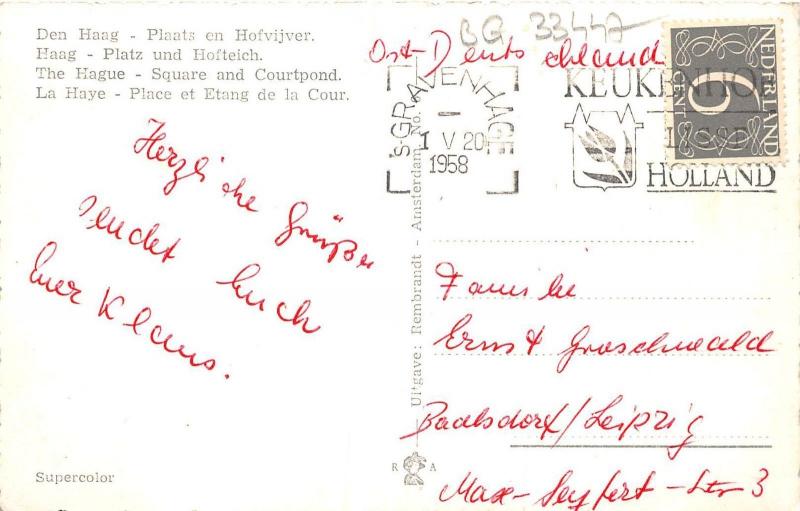 Den Haag - Plaats en Hofvijver.
Haag - Platz und Hofteich.
The Hague - Square and Courtpond.
La Haye - Place et Etang de la Cour.
Herzliche Grüße
sendet Euch
Euer Klaus.
Supercolor
Uitgave: Rembrandt - Amsterdam No.
R A
BG 33447
Ost-Deutschland
'S-GRAVENHAGE
1 V 20
1958
KEUKENHOF
LISSE
HOLLAND
NEDERLAND
6
CENT
Familie
Ernst Groschwald
Baalsdorf/Leipzig
Max-Seyfert-Str 3